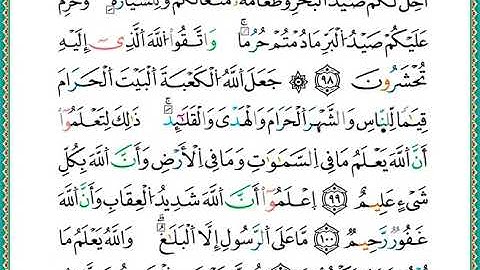 احل لكم صيد البحر وطعامه متاعا لكم وللسيارة ۖ وحرم
عليكم صيد البر ما دمتم حرما ۗ واتقوا الله الذي اليه
تحشرون ﴿٩٨﴾ ۞ جعل الله الكعبة البيت الحرام
قياما للناس والشهر الحرام والهدى والقلائد ۗ ذلك لتعلموا
ان الله يعلم ما في السماوات وما في الارض وان الله بكل
شيء عليم ﴿٩٩﴾ اعلموا ان الله شديد العقاب وان الله
غفور رحيم ﴿١٠٠﴾ ما على الرسول الا البلاغ ۗ والله يعلم ما